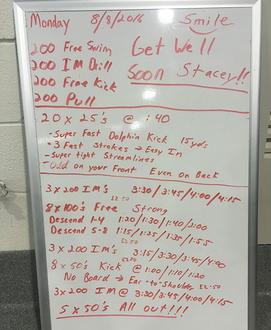 Monday 8/8/2016 Smile
200 Free Swim
200 IM Drill
200 Free Kick
200 Pull
Get Well
Soon Stacey!!
20 x 25's @ :40
- Super Fast Dolphin Kick 15yds
- 3 Fast Strokes → Easy In
- Super tight Streamlines
- Odd on your Front Even on Back
3 x 200 IM's 3:30/3:45/4:00/4:15
8 x 100's Free Strong
Descend 1-4 1:20/1:30/1:40/2:00
Descend 5-8 1:15/1:25/1:35/1:55
3 x 200 IM's 3:15/3:45/4:00
8 x 50's Kick @ 1:00/1:10/1:20
No Board → Ear-to-Shoulder
3 x 200 IM @ 3:30/3:45/4:00/4:15
5 x 50's All out!!!